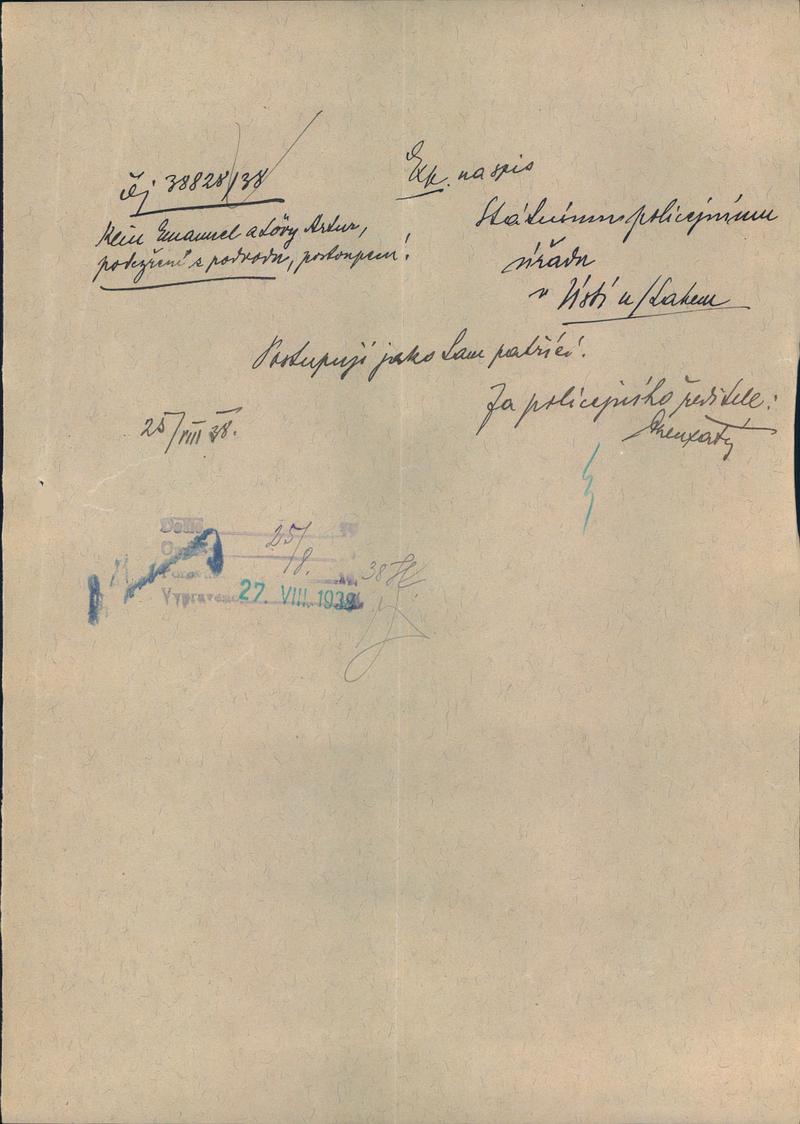 Čj 38828/38
Exp. na spis
Klein Emanuel a Löwy Artur,
podezření z podvodu, postoupení!
Státnímu policejnímu
úřadu
v Ústí n/Labem
Postupuji jako tam patřící.
Za policejního ředitele:
25/VIII 38.
Došlo
25/8. 38
Vypraveno 27. VIII. 1938